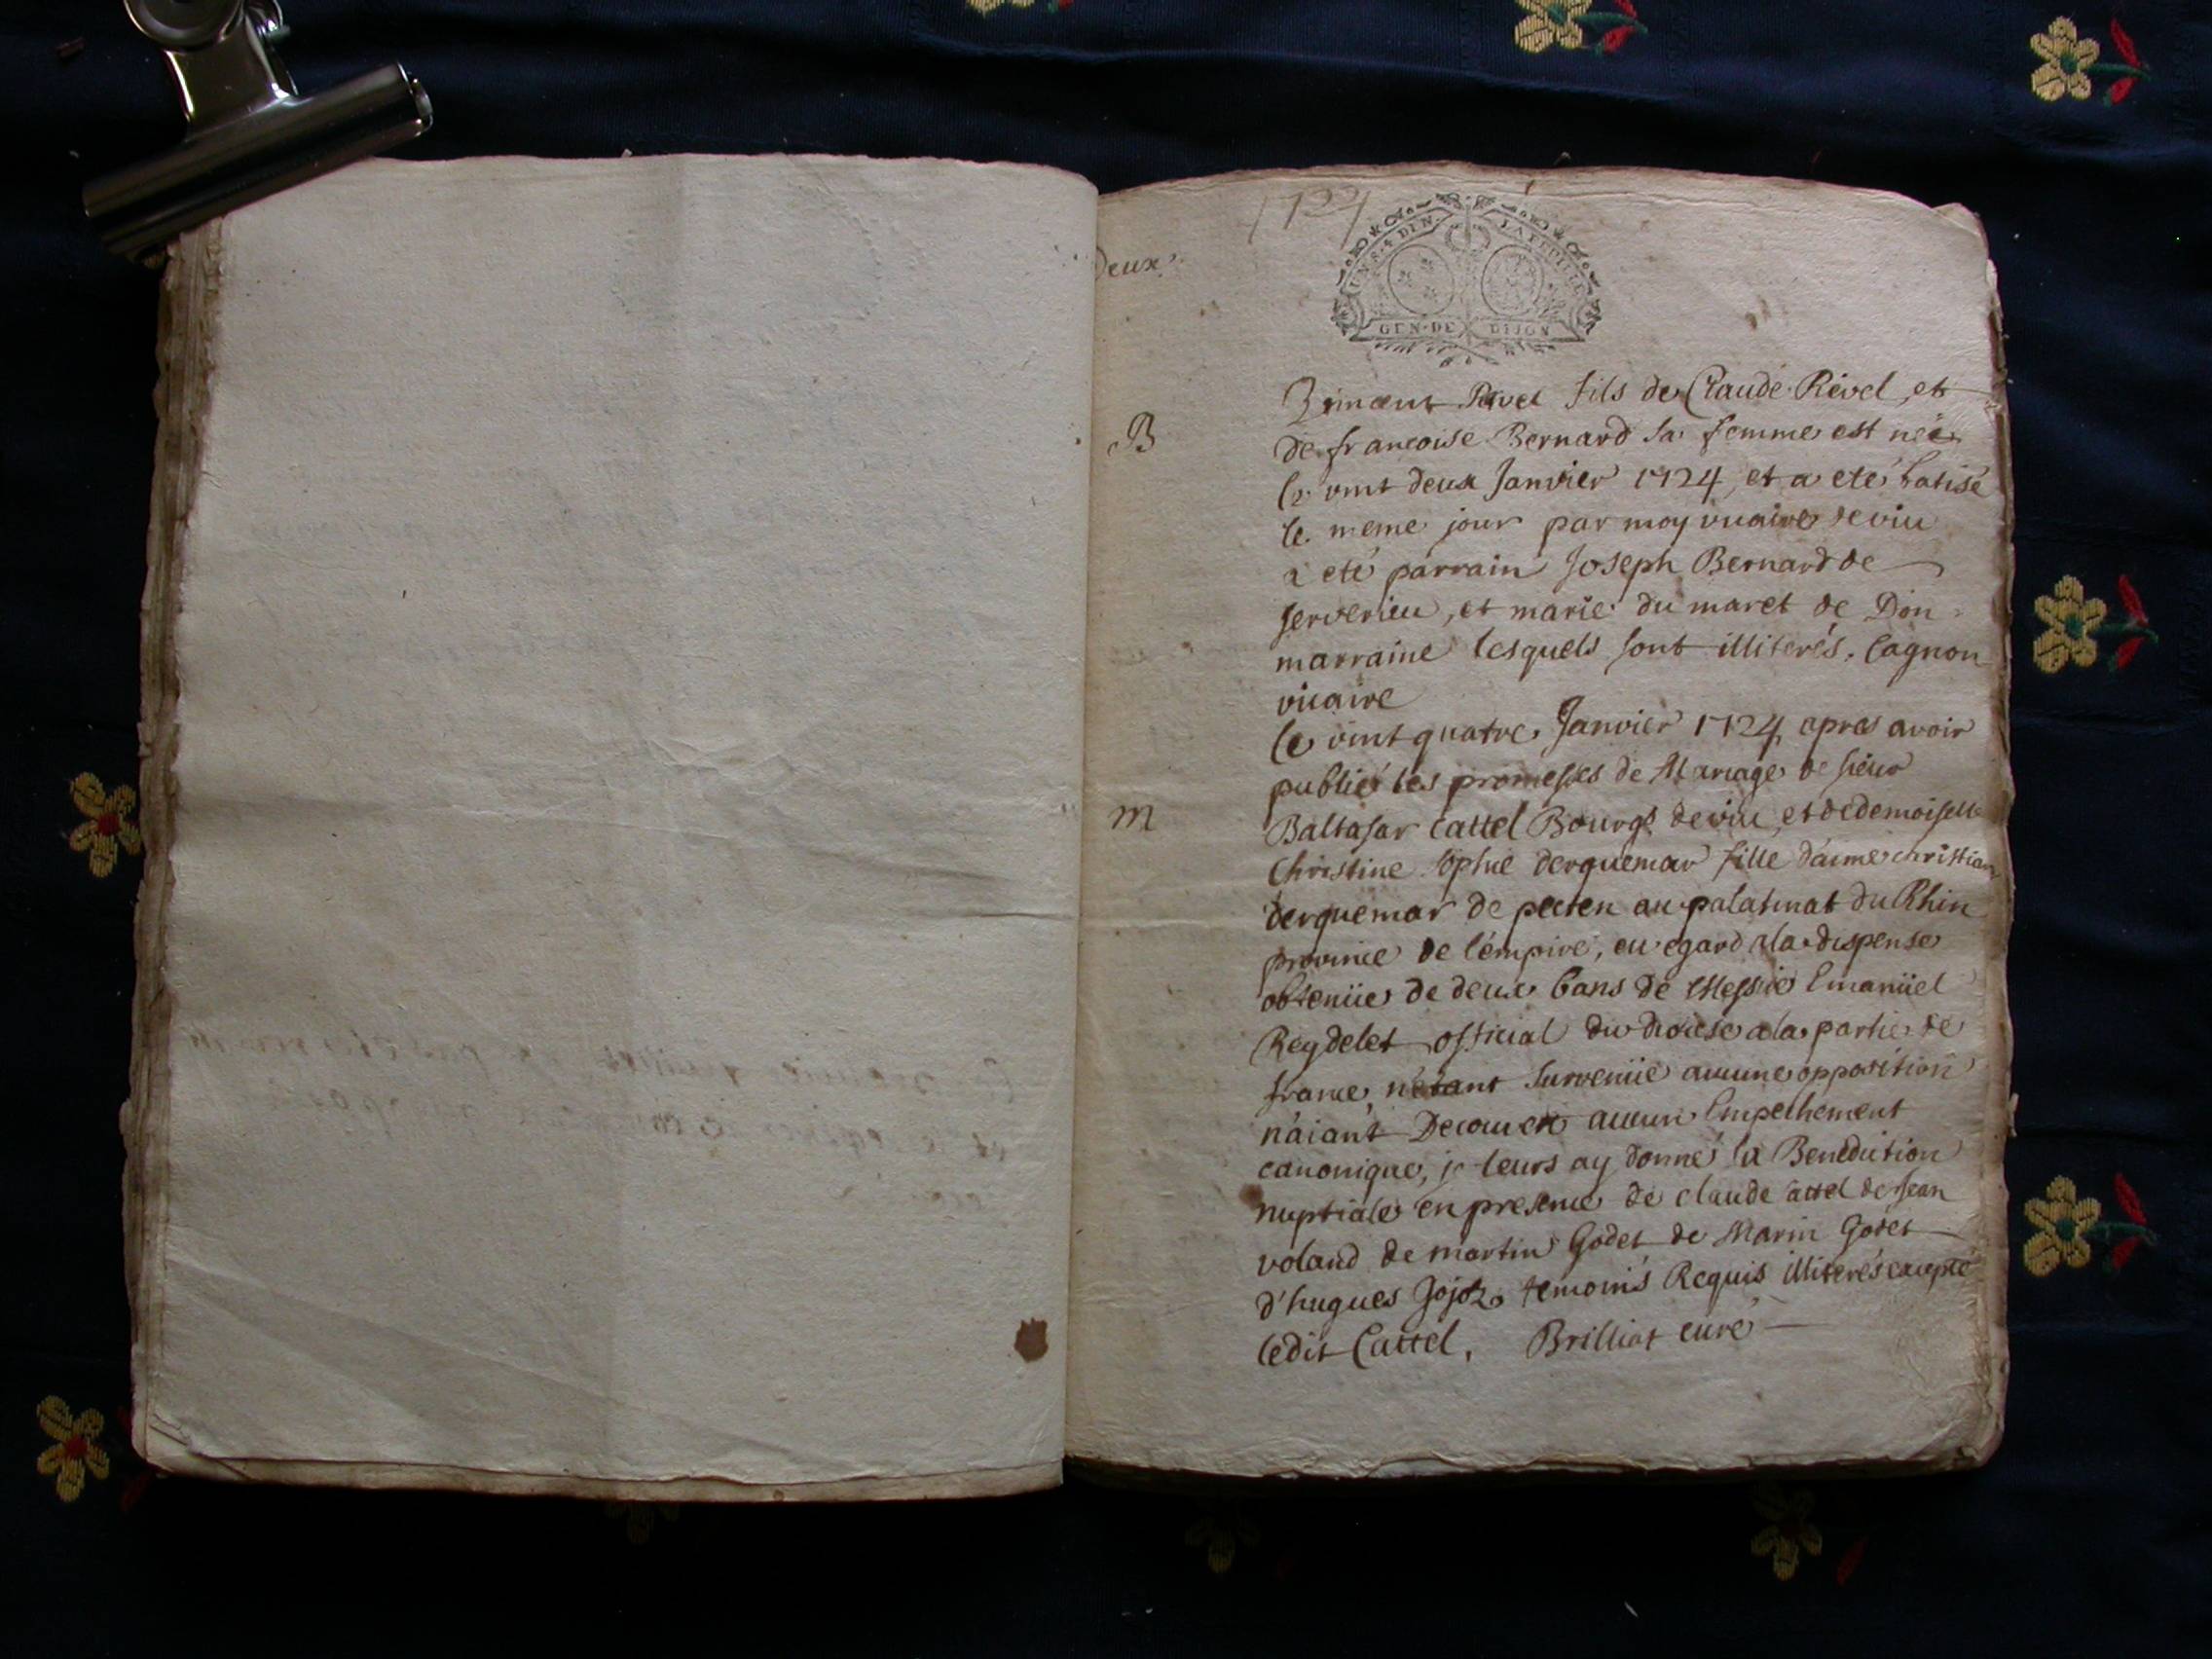 1724
deux
UN S. 4 DEN. LA FEUILLE
GEN. DE DIJON
fils de Claude Rivel, et
B
de francoise Bernard sa femme est née
le vint deux Janvier 1724, et a eté batisé
le meme jour par moy vicaire de viu
a eté parrain Joseph Bernard de
serverieu, et marie du maret de Don=
marraine lesquels sont illiterés. Cagnon
vicaire
le vint quatre Janvier 1724, apres avoir
publié les promesses de Mariage de sieur
M
Baltasar Cattel Bourgs de viu, et de demoiselle
Christine sophie derquemar fille d'aime christian
derquemar de peeten au palatinat du Rhin
province de l'empire, eu egard a la dispense
obtenüe de deux bans de Messire Emanüel
Reydelet official du diocese a la partie de
france, n'etant survenüe aucune opposition
n'aiant Decouvert aucun Empechement
canonique, je leurs ay donné la Benediction
nuptiale en presence de claude cattel de Jean
voland de martin Godet de Marin Godet
d'hugues Jojoz temoins Requis illiterés excepté
ledit Cattel. Brilliat curé